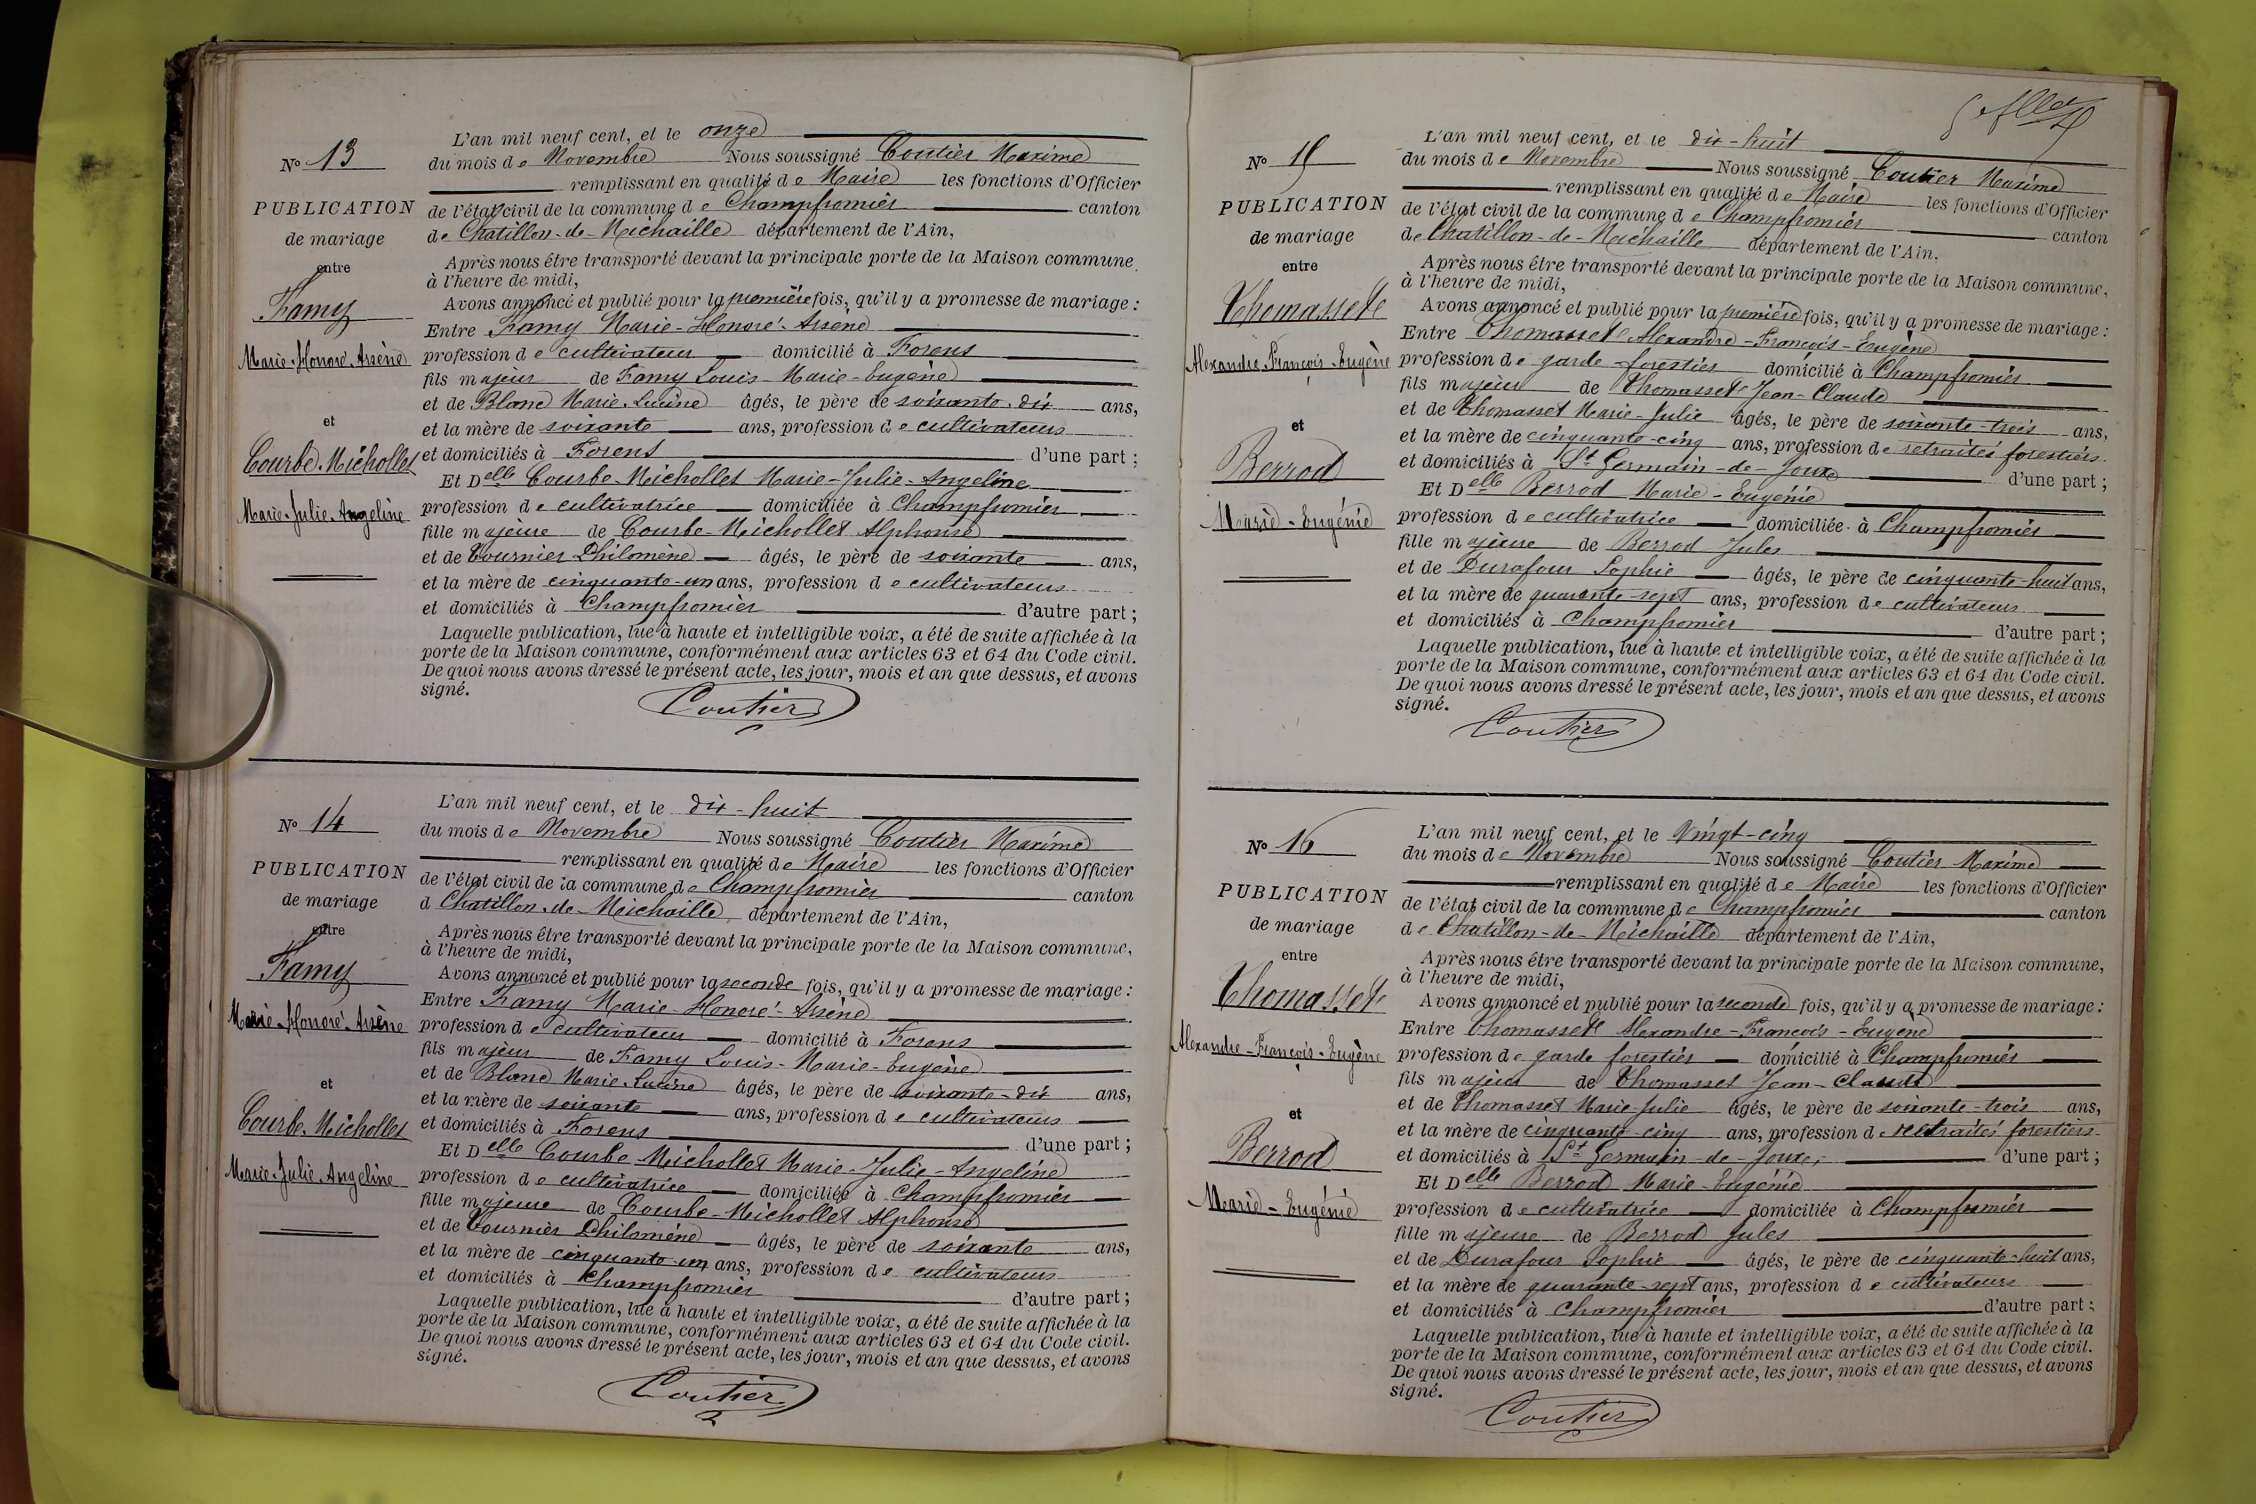 N° 13
PUBLICATION
de mariage
entre
Famy
Marie-Honoré-Arsène
et
Courbe-Michollet
Marie-Julie-Angeline
L'an mil neuf cent, et le onze
du mois de Novembre Nous soussigné Coutier Maxime
remplissant en qualité de Maire les fonctions d'Officier
de l'état civil de la commune de Champfromier canton
de Chatillon-de-Michaille département de l'Ain,
Après nous être transporté devant la principale porte de la Maison commune,
à l'heure de midi,
Avons annoncé et publié pour la première fois, qu'il y a promesse de mariage :
Entre Famy Marie-Honoré-Arsène
profession de cultivateur domicilié à Forens
fils majeur de Famy Louis-Marie-Eugène
et de Blanc Marie-Lucine âgés, le père de soixante-dix ans,
et la mère de soixante ans, profession de cultivateurs
et domiciliés à Forens d'une part ;
Et Delle Courbe-Michollet Marie-Julie-Angeline
profession de cultivatrice domiciliée à Champfromier
fille majeure de Courbe-Michollet Alphonse
et de Tournier Philomène âgés, le père de soixante ans,
et la mère de cinquante-un ans, profession de cultivateurs
et domiciliés à Champfromier d'autre part ;
Laquelle publication, lue à haute et intelligible voix, a été de suite affichée à la
porte de la Maison commune, conformément aux articles 63 et 64 du Code civil.
De quoi nous avons dressé le présent acte, les jour, mois et an que dessus, et avons
signé.
Coutier
N° 14
PUBLICATION
de mariage
entre
Famy
Marie-Honoré-Arsène
et
Courbe-Michollet
Marie-Julie-Angeline
L'an mil neuf cent, et le dix-huit
du mois de Novembre Nous soussigné Coutier Maxime
remplissant en qualité de Maire les fonctions d'Officier
de l'état civil de la commune de Champfromier canton
d Chatillon-de-Michaille, département de l'Ain,
Après nous être transporté devant la principale porte de la Maison commune,
à l'heure de midi,
Avons annoncé et publié pour la seconde fois, qu'il y a promesse de mariage :
Entre Famy Marie-Honoré-Arsène
profession de cultivateur domicilié à Forens
fils majeur de Famy Louis-Marie-Eugène
et de Blanc Marie-Lucine âgés, le père de soixante-dix ans,
et la mère de soixante ans, profession de cultivateurs
et domiciliés à Forens d'une part ;
Et Delle Courbe-Michollet Marie-Julie-Angeline
profession de cultivatrice domiciliée à Champfromier
fille majeure de Courbe-Michollet Alphonse
et de Tournier Philomène âgés, le père de soixante ans,
et la mère de cinquante-un ans, profession de cultivateurs
et domiciliés à Champfromier d'autre part ;
Laquelle publication, lue à haute et intelligible voix, a été de suite affichée à la
porte de la Maison commune, conformément aux articles 63 et 64 du Code civil.
De quoi nous avons dressé le présent acte, les jour, mois et an que dessus, et avons
signé.
Coutier
N° 15
PUBLICATION
de mariage
entre
Thomasset
Alexandre-François-Eugène
et
Berrod
Marie-Eugénie
L'an mil neuf cent, et le dix-huit
du mois de Novembre Nous soussigné Coutier Maxime
remplissant en qualité de Maire les fonctions d'Officier
de l'état civil de la commune de Champfromier canton
de Chatillon-de-Michaille département de l'Ain.
Après nous être transporté devant la principale porte de la Maison commune,
à l'heure de midi,
Avons annoncé et publié pour la première fois, qu'il y a promesse de mariage :
Entre Thomasset Alexandre-François-Eugène
profession de garde-forestier domicilié à Champfromier
fils majeur de Thomasset Jean-Claude
et de Thomasset Marie-Julie âgés, le père de soixante-trois ans,
et la mère de cinquante-cinq ans, profession de retraités forestiers
et domiciliés à St Germain-de-Joux d'une part ;
Et Delle Berrod Marie-Eugénie
profession de cultivatrice domiciliée à Champfromier
fille majeure de Berrod Jules
et de Durafour Sophie âgés, le père de cinquante-huit ans,
et la mère de quarante-sept ans, profession de cultivateurs
et domiciliés à Champfromier d'autre part ;
Laquelle publication, lue à haute et intelligible voix, a été de suite affichée à la
porte de la Maison commune, conformément aux articles 63 et 64 du Code civil.
De quoi nous avons dressé le présent acte, les jour, mois et an que dessus, et avons
signé.
Coutier
N° 16
PUBLICATION
de mariage
entre
Thomasset
Alexandre-François-Eugène
et
Berrod
Marie-Eugénie
L'an mil neuf cent, et le Vingt-cinq
du mois de Novembre Nous soussigné Coutier Maxime
remplissant en qualité de Maire les fonctions d'Officier
de l'état civil de la commune de Champfromier canton
de Chatillon-de-Michaille département de l'Ain,
Après nous être transporté devant la principale porte de la Maison commune,
à l'heure de midi,
Avons annoncé et publié pour la seconde fois, qu'il y a promesse de mariage :
Entre Thomasset Alexandre-François-Eugène
profession de garde forestier domicilié à Champfromier
fils majeur de Thomasset Jean-Claude
et de Thomasset Marie-Julie âgés, le père de soixante-trois ans,
et la mère de cinquante-cinq ans, profession de retraités forestiers
et domiciliés à St Germain-de-Joux, d'une part ;
Et Delle Berrod Marie-Eugénie
profession de cultivatrice domiciliée à Champfromier
fille majeure de Berrod Jules
et de Durafour Sophie âgés, le père de cinquante-huit ans,
et la mère de quarante-sept ans, profession de cultivateurs
et domiciliés à Champfromier d'autre part ;
Laquelle publication, lue à haute et intelligible voix, a été de suite affichée à la
porte de la Maison commune, conformément aux articles 63 et 64 du Code civil.
De quoi nous avons dressé le présent acte, les jour, mois et an que dessus, et avons
signé.
Coutier